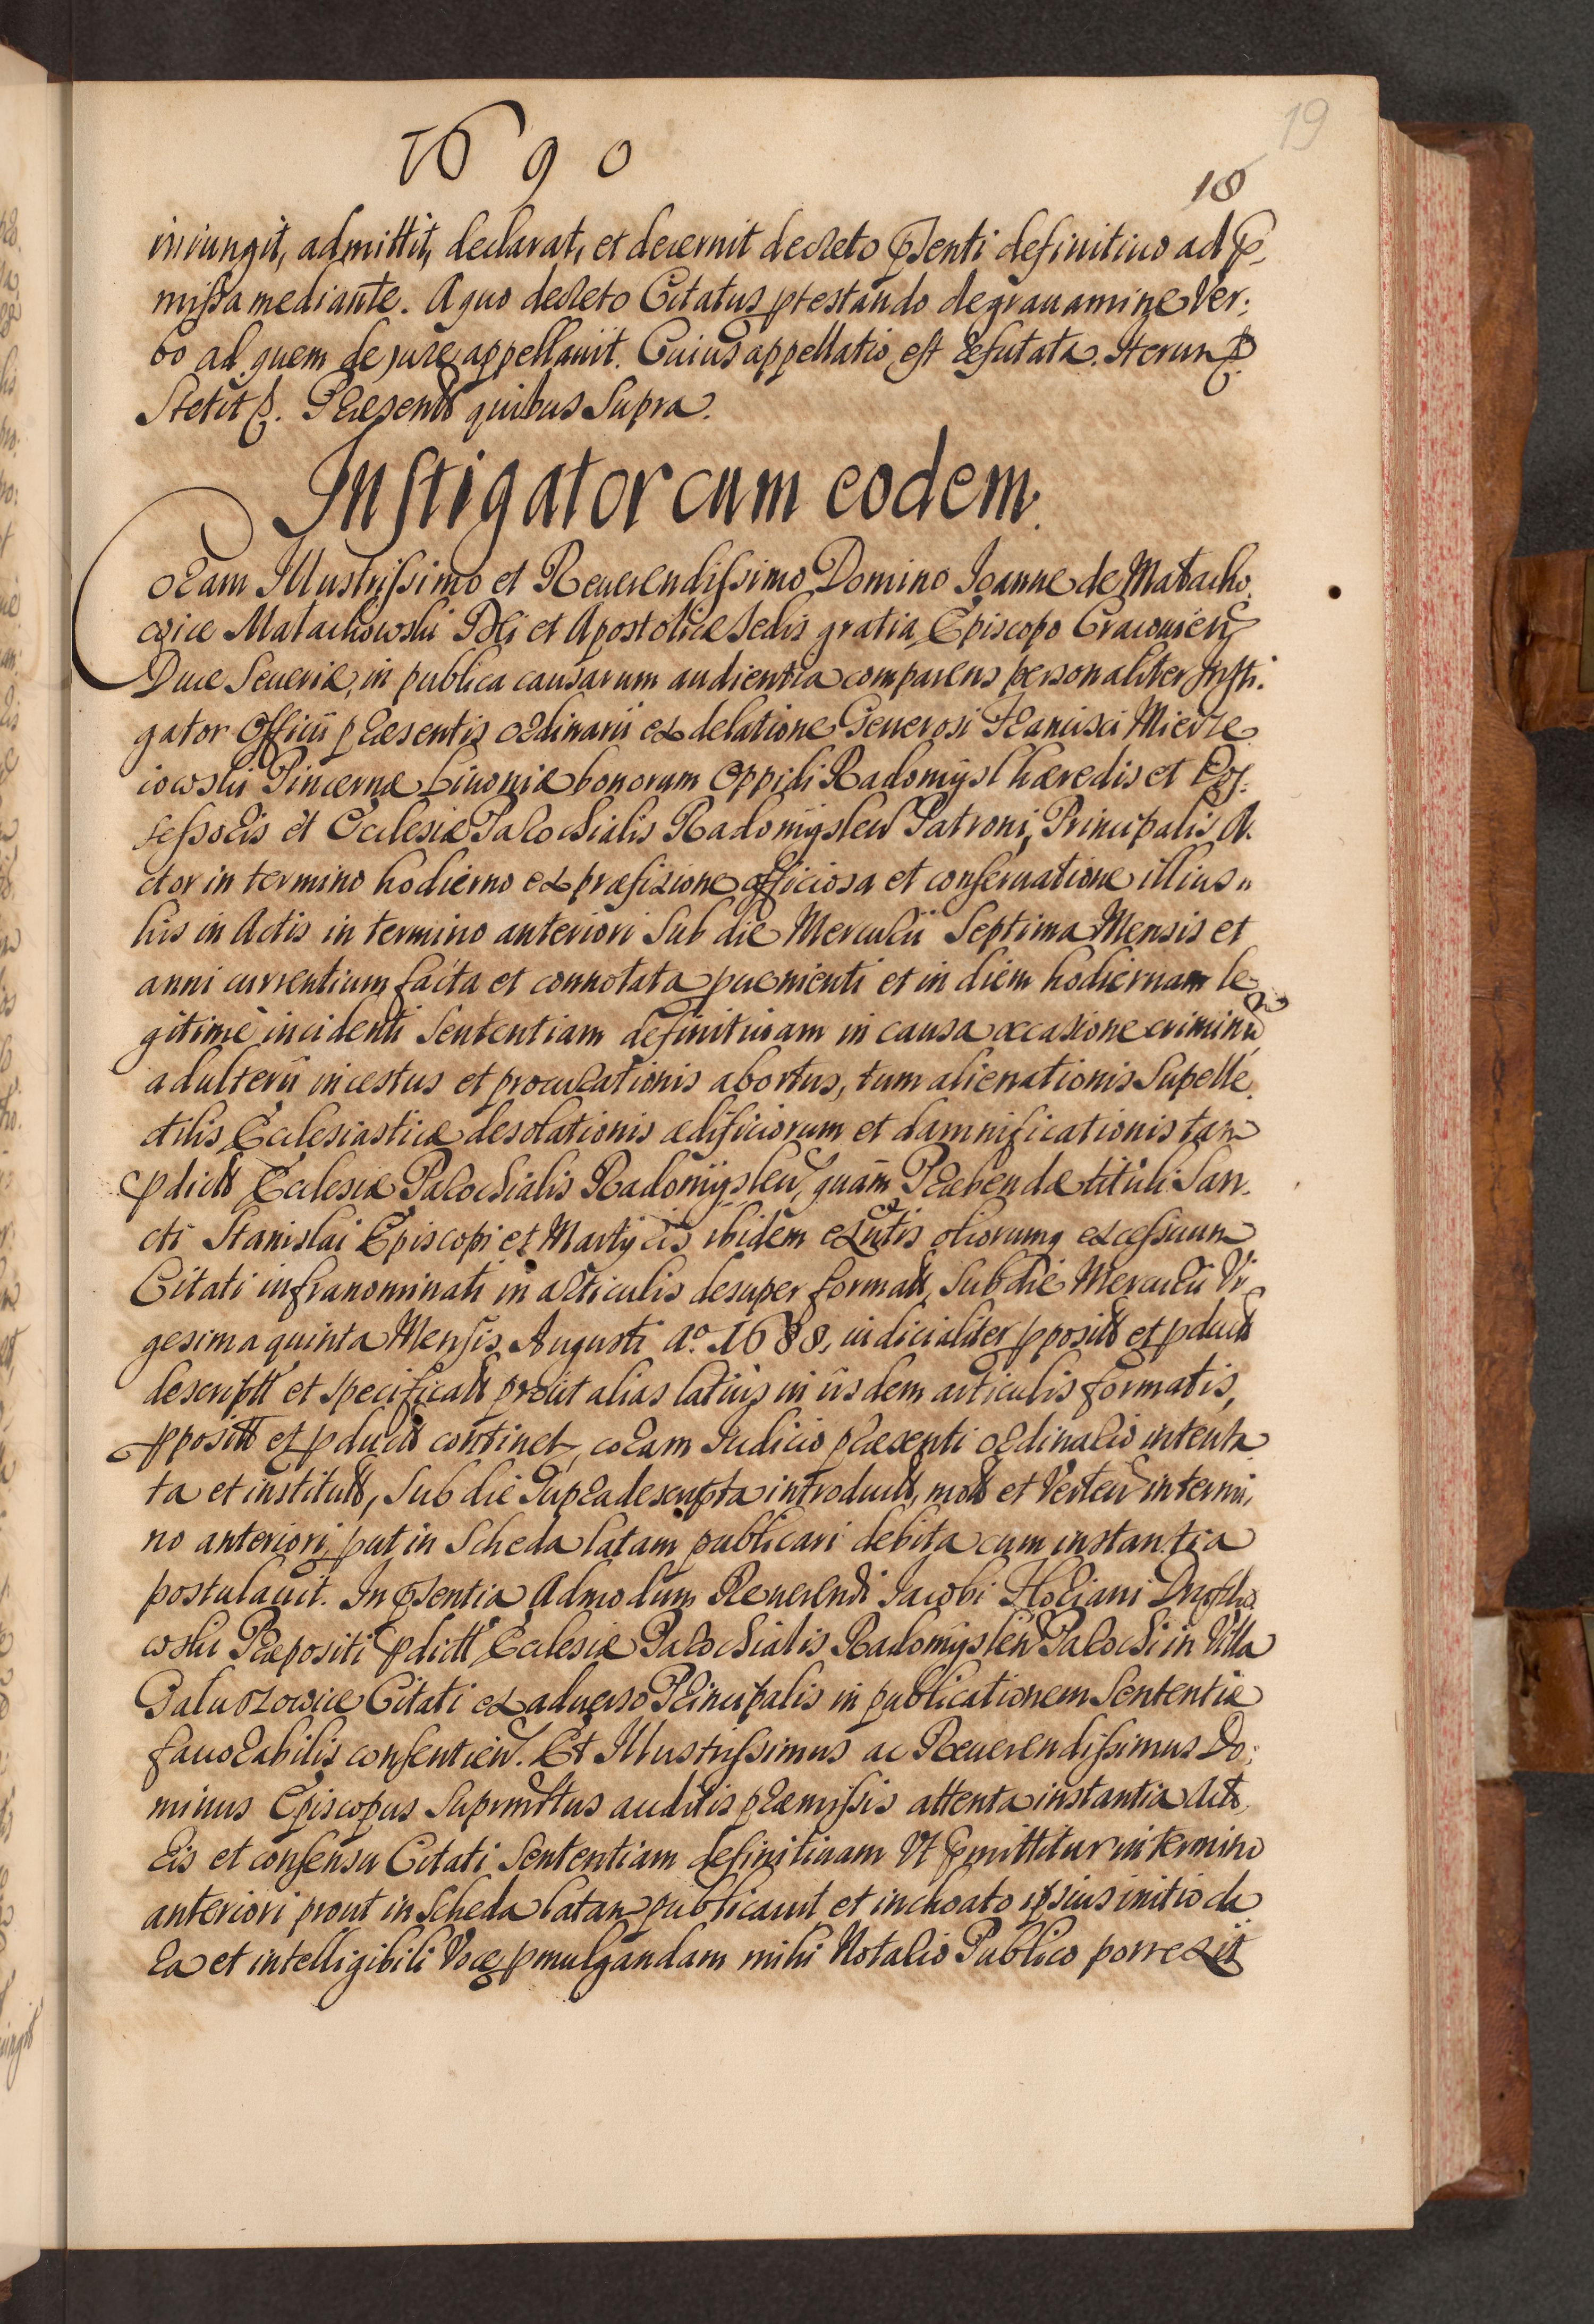 1690
19
18
iniungit, admittit, declarat, et decernit decreto pſenti definitiuo ad p̄-
miſsa mediante. A quo decreto Citatus ptestando de grauamine Ver:
bo ad quem de jure appellauit. Cuius appellatio est refutata. Iterum p.
Stetit p. Præsentt quibus Supra.
Instigator cum eodem.
Coram Illustrissimo et Reuerendissimo Domino Ioanne de Małacho
wice Małachowski Dei et Apostolicæ Sedis gratia Episcopo Cracouien
Duce Seueriæ, in publica causarum audientia comparens personaliter Insti.
gator Officii præsentis ordinarii ex delatione Generosi Francisci Mierze
iowski Pincernæ Liuoniæ bonorum Oppidi Radomÿsl hæredis et Pos.
sessoris et Ecclesiæ Parochialis Radomÿslen Patroni, Principalis A.
ctor in termino hodierno ex præfixione officiosa et conseruatione illius
his in Actis in termino anteriori Sub die Mercurii Septima Mensis et
anni currentium facta et connotata pueniente et in diem hodiernam le
gitime incidenti Sententiam definitiuam in causa occasione criminu
adulterii incestus et procurationis abortus, tum alienationis Supelle.
ctilis Ecclesiasticæ desolationis ædificiorum et damnificationis tam
pdictt Ecclesiæ Parochialis Radomÿslen, quam Præbendæ tituli San.
cti Stanislai Episcopi et Martyris ibidem exntis aliorumq excessuum
Citati infranominati in articulis desuper formatt, Sub die Mercurii Vi
gesima quinta Mensis Augusti Aº. 1688, iudicialiter ppositt et pductt
descriptt et specificatt prout alias latius in iisdem articulis formatis,
ppositt et pductt continet, coram Iudicio præsenti ordinario intenta
ta et institutt, Sub die Supradescripta introductt, mott et Verten in termi,
no anteriori put in Scheda latam publicari debita cum instantia
postulauit. In pſentia Admodum Reuerendi Iacobi Floriani
wski Præpositi pdictt Ecclesiæ Parochialis Radomÿslen Parochi in Villa
Galuszowice Citati ex aduerso Principalis in publicationem Sententiæ
fauorabilis consentien. Et Illustrissimus ac Reuerendissimus Do:
minus Episcopus Suprmttus auditis præmissis attenta instantia Acto
ris et consensu Citati Sententiam definitiuam Vt pmittitur in termino
anteriori prout in Scheda latam publicauit et inchoato ipsius initio cla
ra et intelligibili Voce pmulgandam mihi Notario Publico porrexit